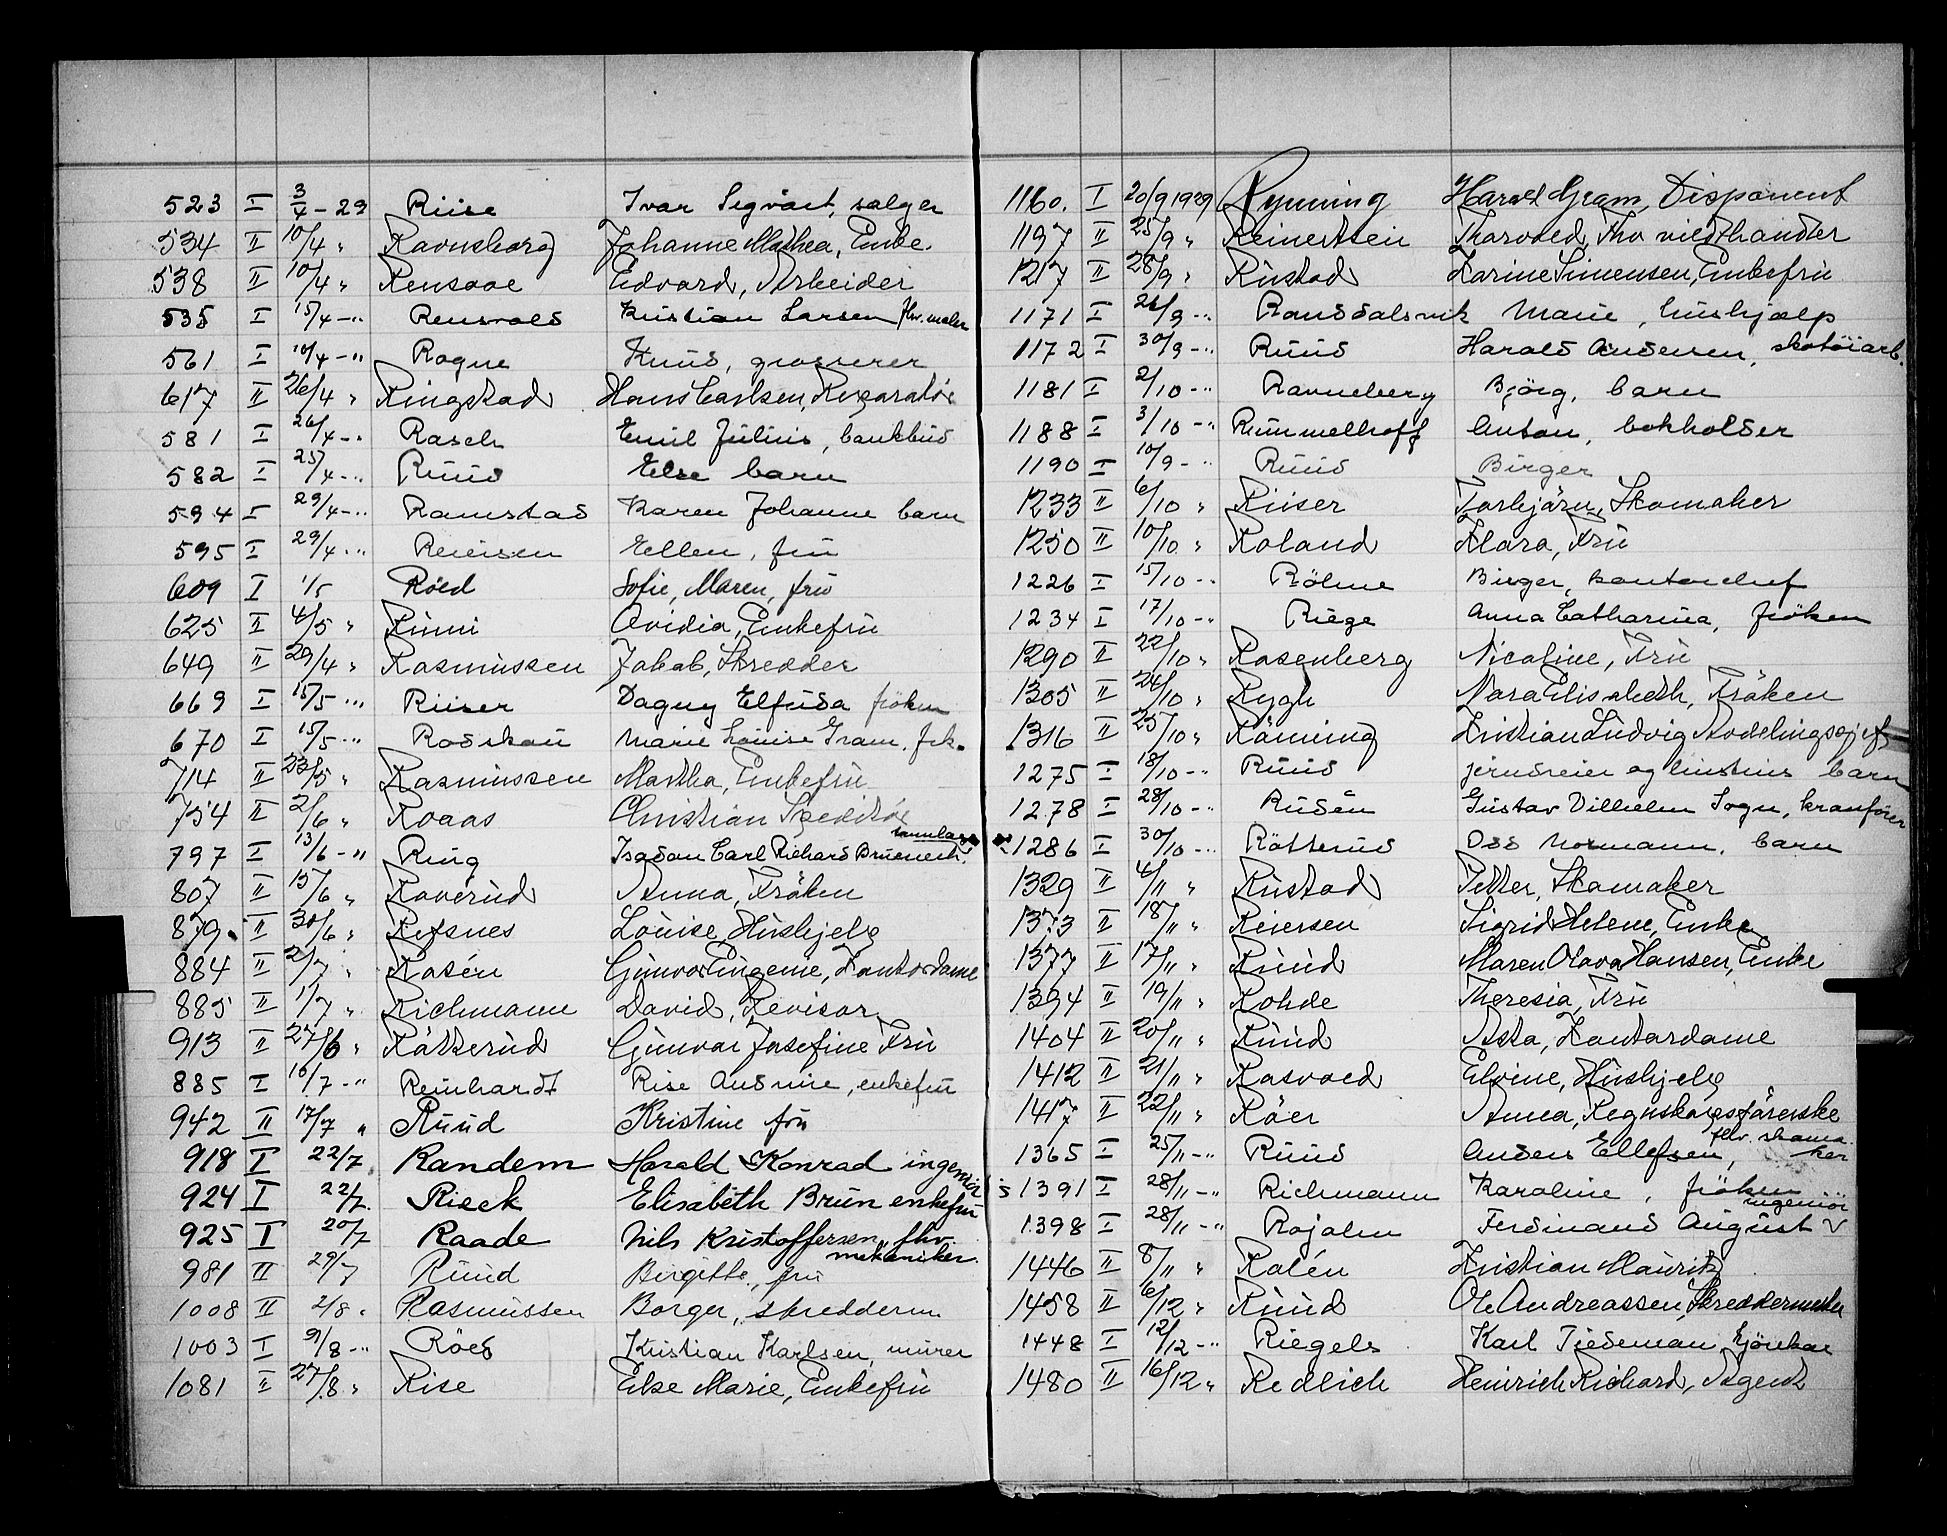 523 I 3/4 - 29 Riise Ivar Sigvart, selger
534 II 10/4 " Ravnsborg Johanne Mathea, Enke.
538 II 10/4 " Rensaae Edvard, Arbeider
535 I 15/4 -" Rensvold Kristian Larsen fhv. maler
561 I 10/4 -" Rogne Knud, grosserer
617 II 26/4 " Ringstad Hans Carlsen, Reparatør
581 I 26/4 -" Rasch Emil Julius, bankbud
582 I 25/4 -" Ruud Else barn
594 I 29/4 -" Ramstad Karen Johanne barn
595 I 29/4 -" Reiersen Ellen, fru
609 I 1/5 Röed Sofie, Maren, fru
625 II 4/5 " Runni Ovidia, Enkefru
649 II 29/4 " Rasmussen Jakob, Skredder
669 I 15/5 -" Riiser Dagny Elfrida fröken
670 I 15/5 -" Rodskou Marie Louise Gram, frk.
714 II 23/5 " Rasmussen Martha, Enkefru
754 II 2/6 " Roaas Christian Speditör
797 I 13/6 -" Ring Isadan Carl Richard Bruenech.
807 II 15/6 " Raverud Anna, Fröken
879. II 30/6 " Refsnes Louise, Hushjelp
884 II 2/7 " Rosén Gunvor Ingeme, Kontordame
885 II 1/7 " Richmann David, Revisor
913 II 27/6 " Rätterud Gunvor Josefine Fru
885 I 16/7 -" Reinhardt Rise Andrine, enkefru
942 II 17/7 " Ruud Kristine fru
918 I 22/7. Randem Harald Konrad ingeniör
924 I 22/7. Rieck Elisabeth Brun enkefru
925 I 20/7 Raade Nils Kristoffersen, fhv.
mekaniker.
981 II 29/7 Ruud Birgitte, fru
1008 II 2/8 " Rasmussen Borger, skredderm.
1003 I 9/8 -" Röed Kristian Karlsen, murer
1081 II 27/8 " Rise Else Marie, Enkefru
1160. I 20/9 1929 Rynning Harald Gram, Disponent
1197 II 25/9 " Reinertsen Thorvald, Fhv vildthandler
1217 II 28/9 " Rustad Karine Simensen, Enkefru
1171 I 26/9 -" Randdalsvik Marie, hushjælp
1172 I 30/9 -" Ruud Harald Andersen, skotöiarb.
1181 I 2/10 -" Ranneberg Bjørg, barn
1188 I 3/10 -" Rummelhoff Anton, bokholder
1190 I 10/9 -" Ruud Birger
1233 II 6/10 " Riiser Torbjörn, Skomaker
1250 II 10/10 " Roland Klara, Fru
1226 I 15/10 -" Röhne Birger, kontorchef
1234 I 17/10 -" Riege Anna Catharina, fröken
1290 II 22/10 " Rosenberg Nicoline, Fru
1305 II 24/10 " Rygh Nora Elisabeth, Fröken
1316 II 25/10 " Rönning Kristian Ludvig Avdelingssjef
1275 I 18/10 -" Ruud
1278 I 28/10 -" Rudén Gustav Vilhelm Sogn, kranfører
1286 I 30/10 -" Rötterud Odd Normann, barn
1329 II 4/11 " Rustad Petter, Skomaker
1373 II 18/11 " Reiersen Sigrid Helene, Enke
1377 II 17/11 " Ruud Maren Olava Hansen, Enke
1394 II 19/11 " Rohde Theresia, Fru
1404 II 20/11 " Ruud Asta, Kontordame
1412 II 21/11 " Rosvoed Elvine, Hushjelp
1417 II 22/11 " Röer Anna, Regnskapsförerske
1365 I 25/11 -" Ruud Anders Ellefsen, fhv. skoma-
ker
1391 I 28/11 -" Richmann Karoline, fröken
1398 I 28/11 -" Rojahn Ferdinand August ingeniör
1446 II 8/11 " Rolén Kristian Mauritz
1458 II 6/12 " Ruud Ole Andreassen, Skreddermester
1448 I 12/12 -" Riegels Karl Tiedeman
1480 II 16/12 " Redlich Heinrich Richard, Agent